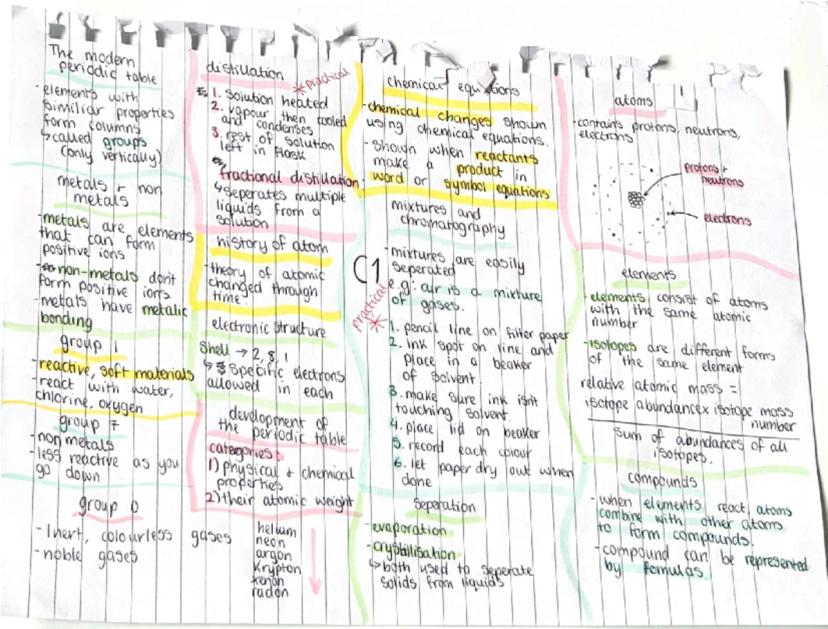 The modern
periodic table
- elements with
similiar properties
form columns
↳ called groups
(only vertically)
metals + non
metals
- metals are elements
that can form
positive ions
- non-metals don't
form positive ions
- metals have metalic
bonding
group 1
- reactive, soft materials
- react with water,
chlorine, oxygen
group 7
- non metals
- less reactive as you
go down
group 0
- Inert, colourless gases
- noble gases
helium
neon
argon
krypton
xenon
radon
distillation
* practical
1. solution heated
2. vapour then cooled
and condenses
3. rest of solution
left in flask
fractional distillation
↳ seperates multiple
liquids from a
solution
history of atom
- theory of atomic
changed through
time.
electronic structure
Shell → 2, 8, 1
↳ specific electrons
allowed in each
development of
the periodic table
categories:
1) physical + chemical
properties
2) their atomic weight
C1
chemical equations
- chemical changes shown
using chemical equations.
- shown when reactants
make a product in
word or symbol equations
mixtures and
chromatography
- mixtures are easily
seperated
e.g: air is a mixture
of gases.
practical *
1. pencil line on filter paper
2. ink spot on line and
place in a beaker
of solvent.
3. make sure ink isn't
touching solvent.
4. place lid on beaker
5. record each colour
6. let paper dry out when
done
Seperation
- evaporation
- crystilisation
↳ both used to seperate
solids from liquids
atoms
- contains protons, neutrons,
electrons
protons +
neutrons
electrons
elements
- elements consist of atoms
with the same atomic
number
- isotopes are different forms
of the same element
relative atomic mass =
isotope abundance x isotope mass
number
sum of abundances of all
isotopes.
compounds
- when elements react, atoms
combine with other atoms
to form compounds.
- compound can be represented
by fomulas